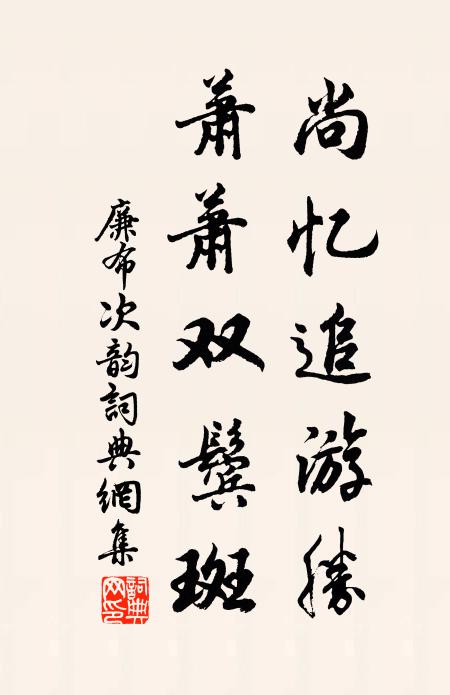 尚忆追游勝
萧萧双鬓斑
廉布次韵詞典網集
詞典网印